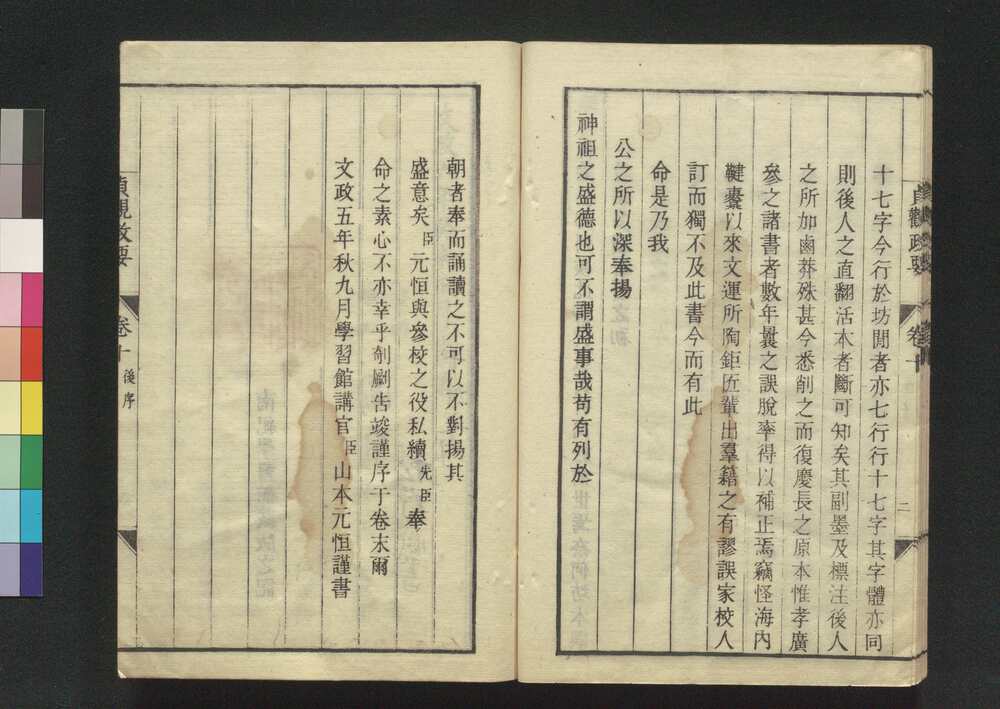 貞觀政要
卷十
二
十七字今行於坊閒者亦七行行十七字其字體亦同
則後人之直翻活本者斷可知矣其副墨及標注後人
之所加鹵莽殊甚今悉削之而復慶長之原本惟孝廣
參之諸書者數年曩之誤脫率得以補正焉竊怪海內
鞬櫜以來文運所陶鉅匠輩出羣籍之有謬誤家校人
訂而獨不及此書今而有此
命是乃我
公之所以深奉揚
神祖之盛德也可不謂盛事哉苟有列於
朝者奉而誦讀之不可以不對揚其
盛意矣臣元恒與參校之役私續先臣奉
命之素心不亦幸乎剞劂告竣謹序于卷末爾
文政五年秋九月學習館講官臣山本元恒謹書
貞觀政要
卷十
後序